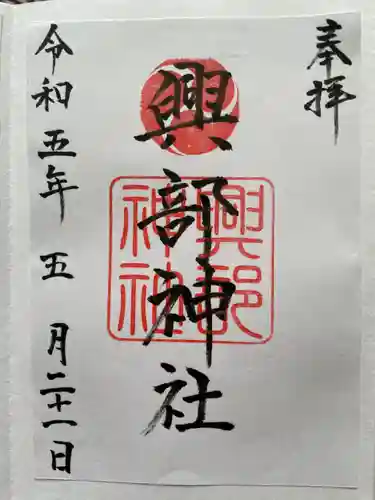 奉拝
興部神社
興部神社
令和五年五月二十一日